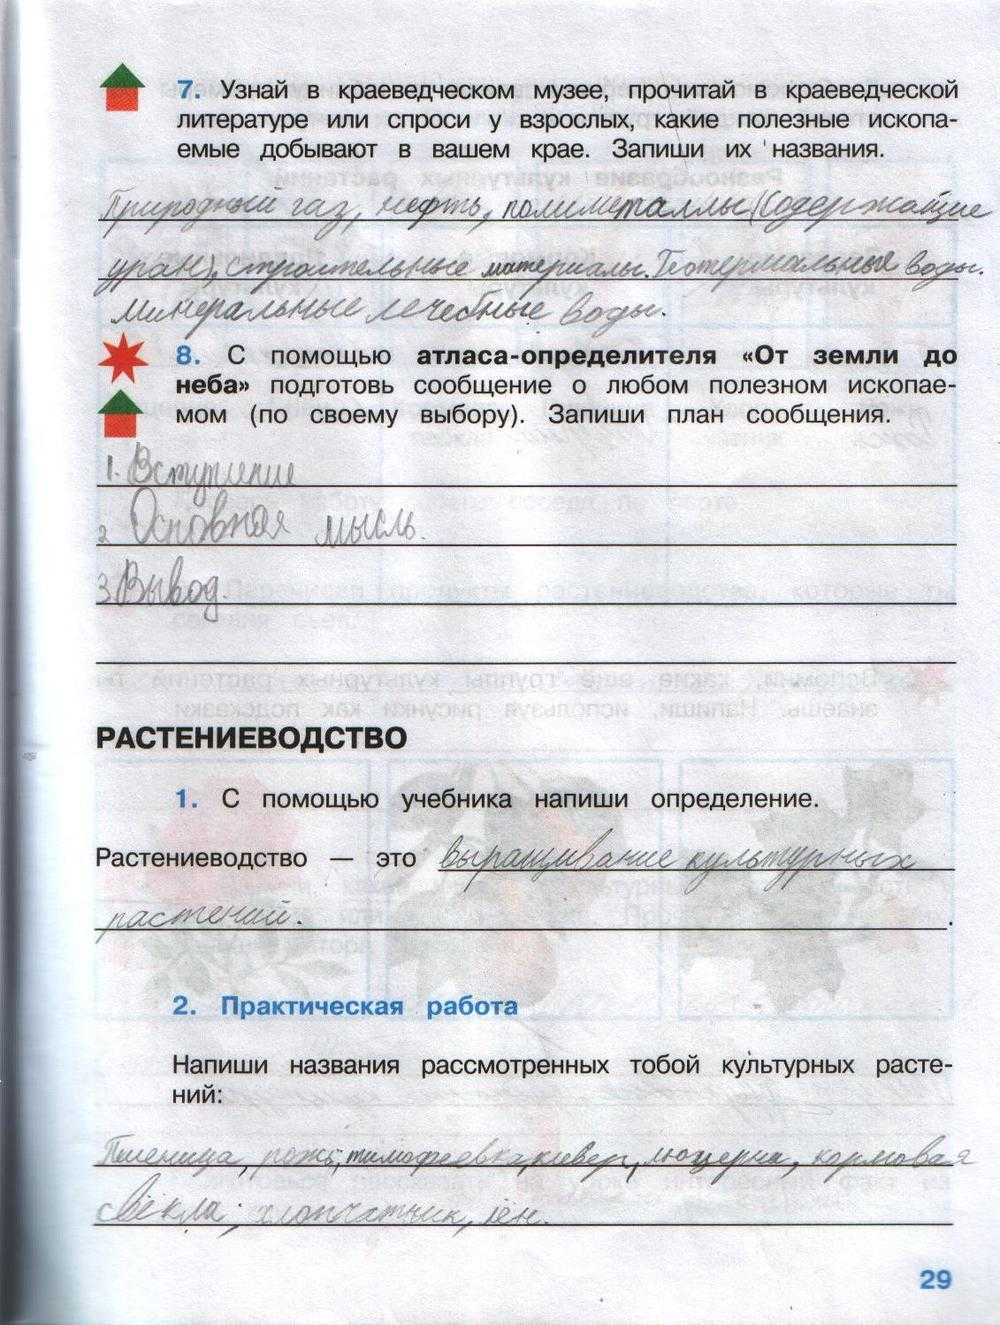 7. Узнай в краеведческом музее, прочитай в краеведческой
литературе или спроси у взрослых, какие полезные ископа-
емые добывают в вашем крае. Запиши их названия.
Природный газ, нефть, полиметаллы (содержащие
уран), строительные материалы. Геотермальные воды.
Минеральные лечебные воды.
8. С помощью атласа-определителя «От земли до
неба» подготовь сообщение о любом полезном ископае-
мом (по своему выбору). Запиши план сообщения.
1. Вступление
2. Основная мысль.
3. Вывод.
РАСТЕНИЕВОДСТВО
1. С помощью учебника напиши определение.
Растениеводство — это выращивание культурных
растений.
2. Практическая работа
Напиши названия рассмотренных тобой культурных расте-
ний:
Пшеница, рожь, тимофеевка, клевер, люцерна, кормовая
свёкла, хлопчатник, лён.
29